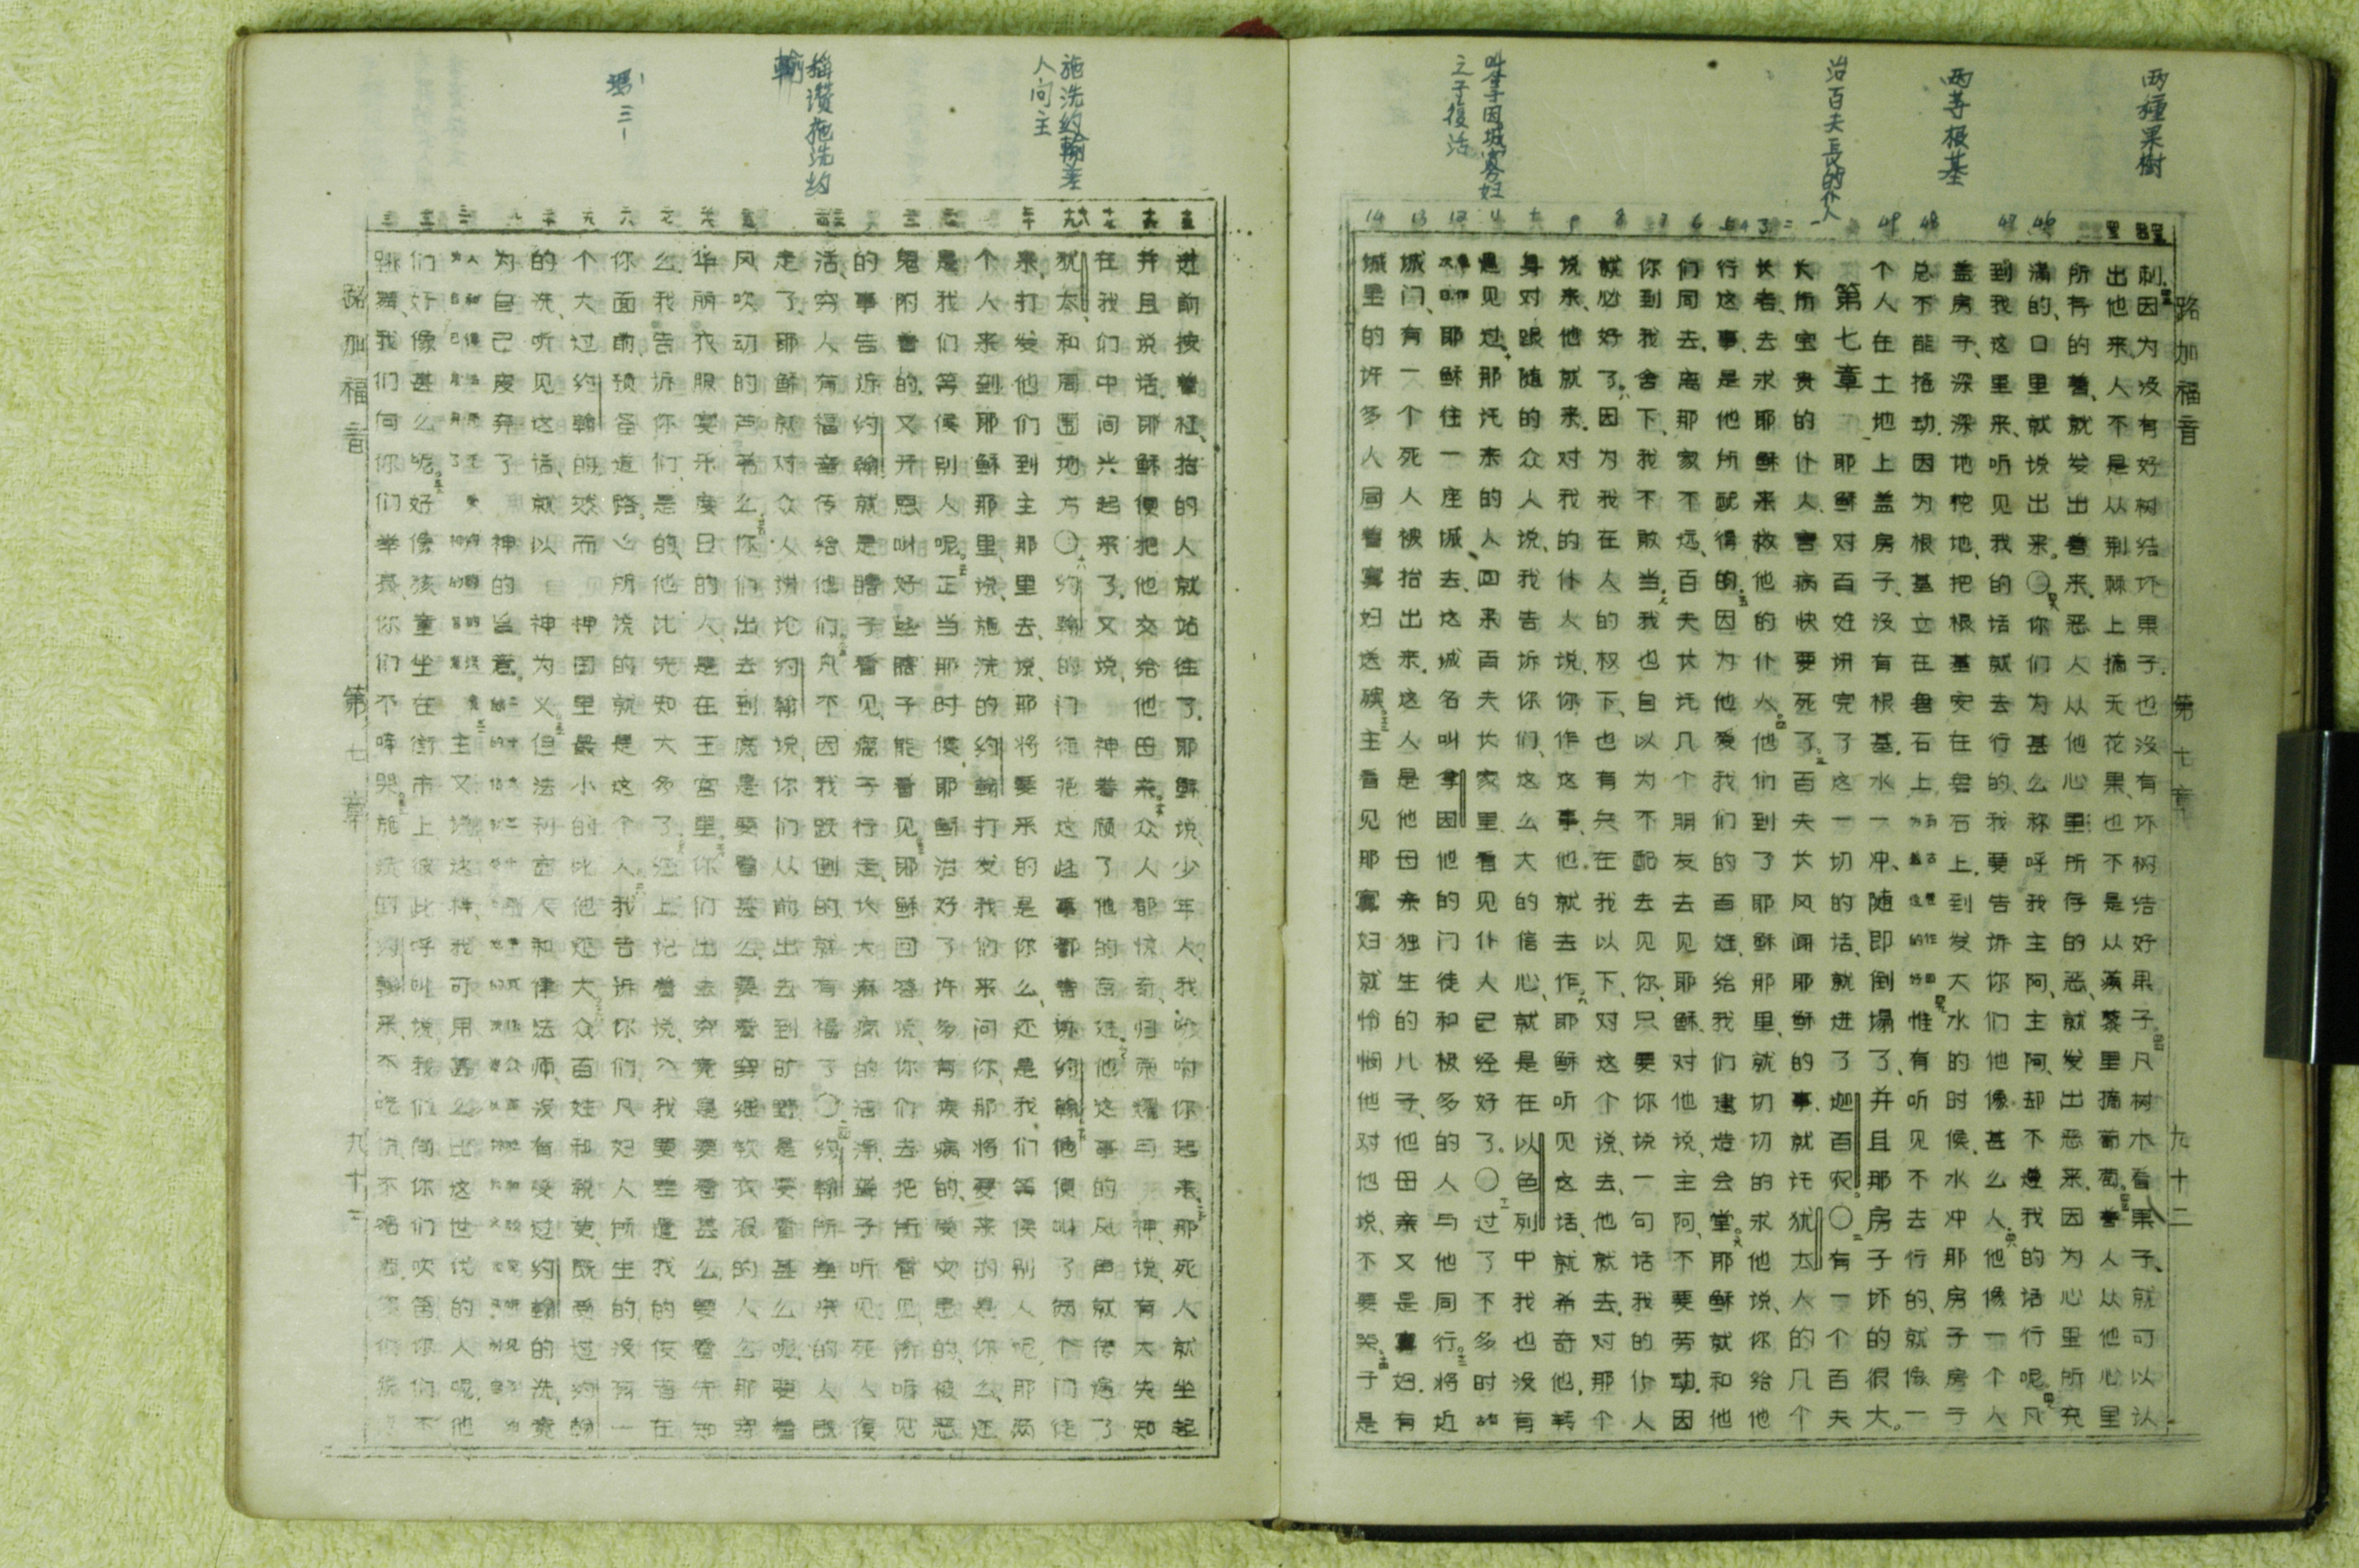 两種果樹
两等根基
治百夫長的仆人
叫拿因城寡妇
之子復活
路加福音 第七章 九十二
刺因为没有好树结坏果子也没有坏树结好果子凡树木看果子就可以认
出他来人不是从荆棘上摘无花果也不是从蒺藜里摘葡萄善人从他心里
所存的善就发出善来恶人从他心里所存的恶就发出恶来因为心里所充
满的口里就说出来○你们为甚么称呼我主阿主阿却不遵我的话行呢凡
到我这里来听见我的话就去行的我要告诉你们他像甚么人他像一个人
盖房子深深地挖地把根基安在磐石上到发大水的时候水冲那房子房子
总不能摇动因为根基立在磐石上惟有听见不去行的就像一
个人在土地上盖房子没有根基水一冲随即倒塌了并且那房子坏的很大
第七章 耶稣对百姓讲完了这一切的话就进了迦百农○有一个百夫
长所宝贵的仆人害病快要死了百夫长风闻耶稣的事就托犹太人的几个
长老去求耶稣来救他的仆人他们到了耶稣那里就切切的求他说你给他
行这事是他所配得的因为他爱我们的百姓给我们建造会堂耶稣就和他
们同去离那家不远百夫长托几个朋友去见耶稣对他说主阿不要劳动因
你到我舍下我不敢当我也自以为不配去见你只要你说一句话我的仆人
就必好了因为我在人的权下也有兵在我以下对这个说去他就去对那个
说来他就来对我的仆人说你作这事他就去作耶稣听见这话就希奇他转
身对跟随的众人说我告诉你们这么大的信心就是在以色列中我也没有
见过那托来的人回来百夫长家里看见仆人已经好了○过了不多时
耶稣往一座城去这城名叫拿因他的门徒和极多的人与他同行将近
城门有一个死人被抬出来这人是他母亲独生的儿子他母亲又是寡妇有
城里的许多人同着寡妇送殡主看见那寡妇就怜悯他对他说不要哭于是
施洗约翰差
人向主
稱讚施洗約
翰
进前按着杠抬的人就站住了耶稣说少年人我吩咐你起来那死人就坐起
并且说话耶稣便把他交给他母亲众人都惊奇归荣耀与 神说有大先知
在我们中间兴起来了又说 神眷顾了他的百姓这事的风声就传遍了
犹太和周围地方○约翰的门徒把这些事都告诉约翰他便叫了两个门徒
来打发他们到主那里去说那将要来的是你么还是我们等候别人呢那两
个人来到耶稣那里说施洗的约翰打发我们来问你那将要来的是你么还
是我们等候别人呢正当那时候耶稣治好了许多有疾病的受灾患的被恶
鬼附着的又开恩叫好些瞎子能看见耶稣回答说你们去把所看见所听见
的事告诉约翰就是瞎子看见瘸子行走长大麻疯的洁净聋子听见死人復
活穷人有福音传给他们凡不因我跌倒的就有福了○约翰所差来的人既
走了耶稣就对众人讲论约翰说你们从前出去到旷野是要看甚么呢要看
风吹动的芦苇么你们出去到底是要看甚么要看穿细软衣服的人么那穿
华丽衣服宴乐度日的人是在王宫里你们出去究竟是要看甚么要看先知
么我告诉你们是的他比先知大多了经上记着说我要差遣我的使者在
你面前预备道路所说的就是这个人我告诉你们凡妇人所生的没有一
个大过约翰的然而 神国里最小的比他还大众百姓和税吏既受过约翰
的洗听见这话就以 神为义但法利赛人和律法师没有受过约翰的洗竟
为自己废弃了 神的旨意
主又说这样我可用甚么比这世代的人呢他
们好像甚么呢好像孩童坐在街市上彼此呼叫说我们向你们吹笛你们不
跳舞我们向你们举哀你们不啼哭施洗的约翰来不吃饼不喝酒你们说
路加福音 第七章 九十三